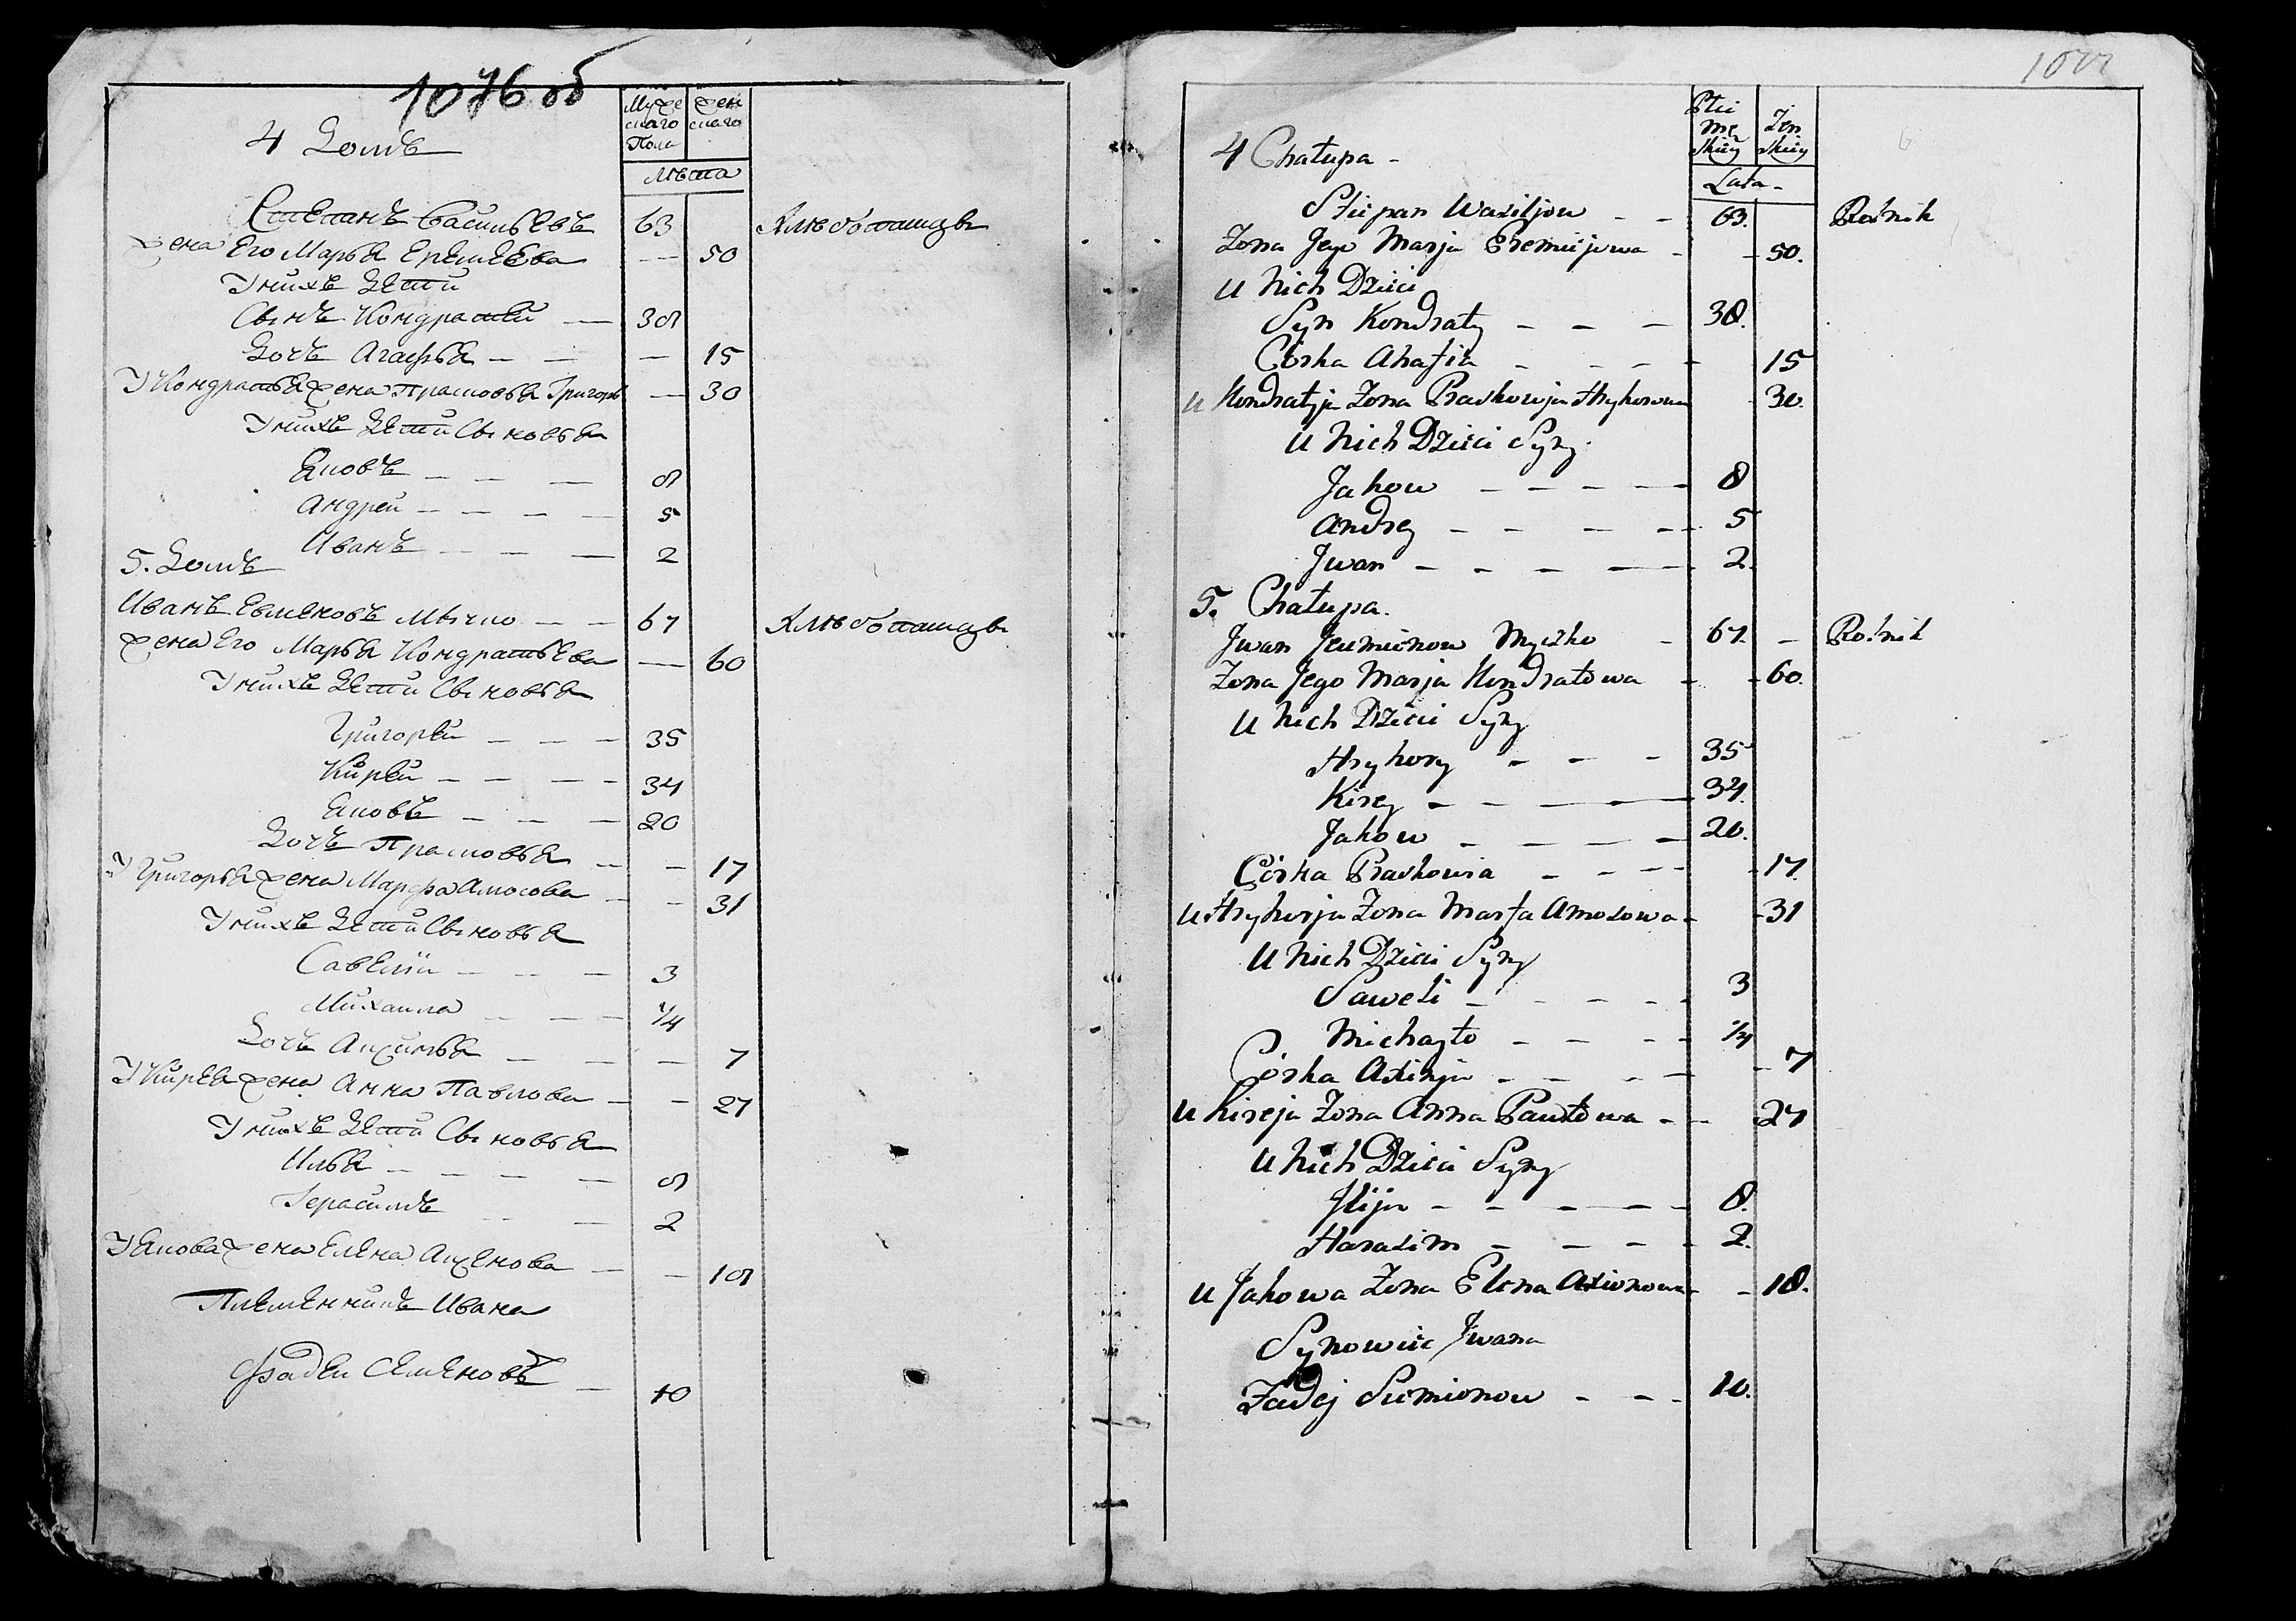 1076 об
Муже
скаго
Пола
жен
скаго
4 Домъ
Лѣта
Степанъ Васильевъ 63 Хлебопашецъ
жена Его Марья Еремѣева — 50
У нихъ Дети
Сынъ Кондратей — 38
Дочь Агафья — — — 15
У Кондратья жена Прасковья Григорь — 30
У нихъ Дети Сыновья
Яковъ — — — 8
Андрей — — — — 5
Иванъ — — — 2
5. Домъ
Иванъ Евменовъ Мычко — — 67 Хлебопашецъ
жена Его Марья Кондратьева — 60
У нихъ Дети Сыновья
Григорей — — — 35
Кирей — — — — 34
Яковъ — — — 20
Дочь Прасковья — — 17
У Григорья жена Марфа Амосова — — 31
У нихъ Дети Сыновья
Савелiй — — — 3
Михайла — — — 1/4
Дочь Аксинья — — — 7
У Кирея жена Анна Павлова — — 27
У нихъ Дети Сыновья
Илья — — — — 8
Герасимъ — — 2
У Якова жена Елена Аксенова — — 18
Племенникъ Ивана
Фадей Семеновъ — 10
1077
Płci
mę
skiey
Żen
skiey
4 Chałupa -
Lata -
Stiepan Wasiljow - - 63. Rolnik
Żona Jego Marja Jeremiejowa - - 50.
u Nich Dzieci
Syn Kondraty - - - 38.
Córka Ahafia - - - - 15
u Kondratja Żona Praskowja Hryhorowa - 30.
u Nich Dzieci Syny.
Jakow - - - - - 8
Andrey - - - - 5
Jwan - - - - - 2.
5. Chałupa.
Jwan Jeumienow Myczko - 67. - Rolnik
Żona Jego Marja Kondratowa - - 60.
u Nich Dzieci Syny
Hryhory - - - 35
Kirey - - - - 34.
Jakow - - - - 20.
Córka Praskowia - - - - - 17.
u Hryhorja Żona Marfa Amosowa - - 31
u Nich Dzieci Syny
Saweli - - - - - 3
Michayło - - - - 1/4
Córka Axinja - - - - - 7
u Kireja Żona Anna Pawłowa - - 27
u Nich Dzieci Syny
Jlija - - - - - 8.
Harasim - - - - 2.
u Jakowa Żona Elena Axionowa - - 18.
Synowiec Jwana
Fadej Siemionow - - - 10.